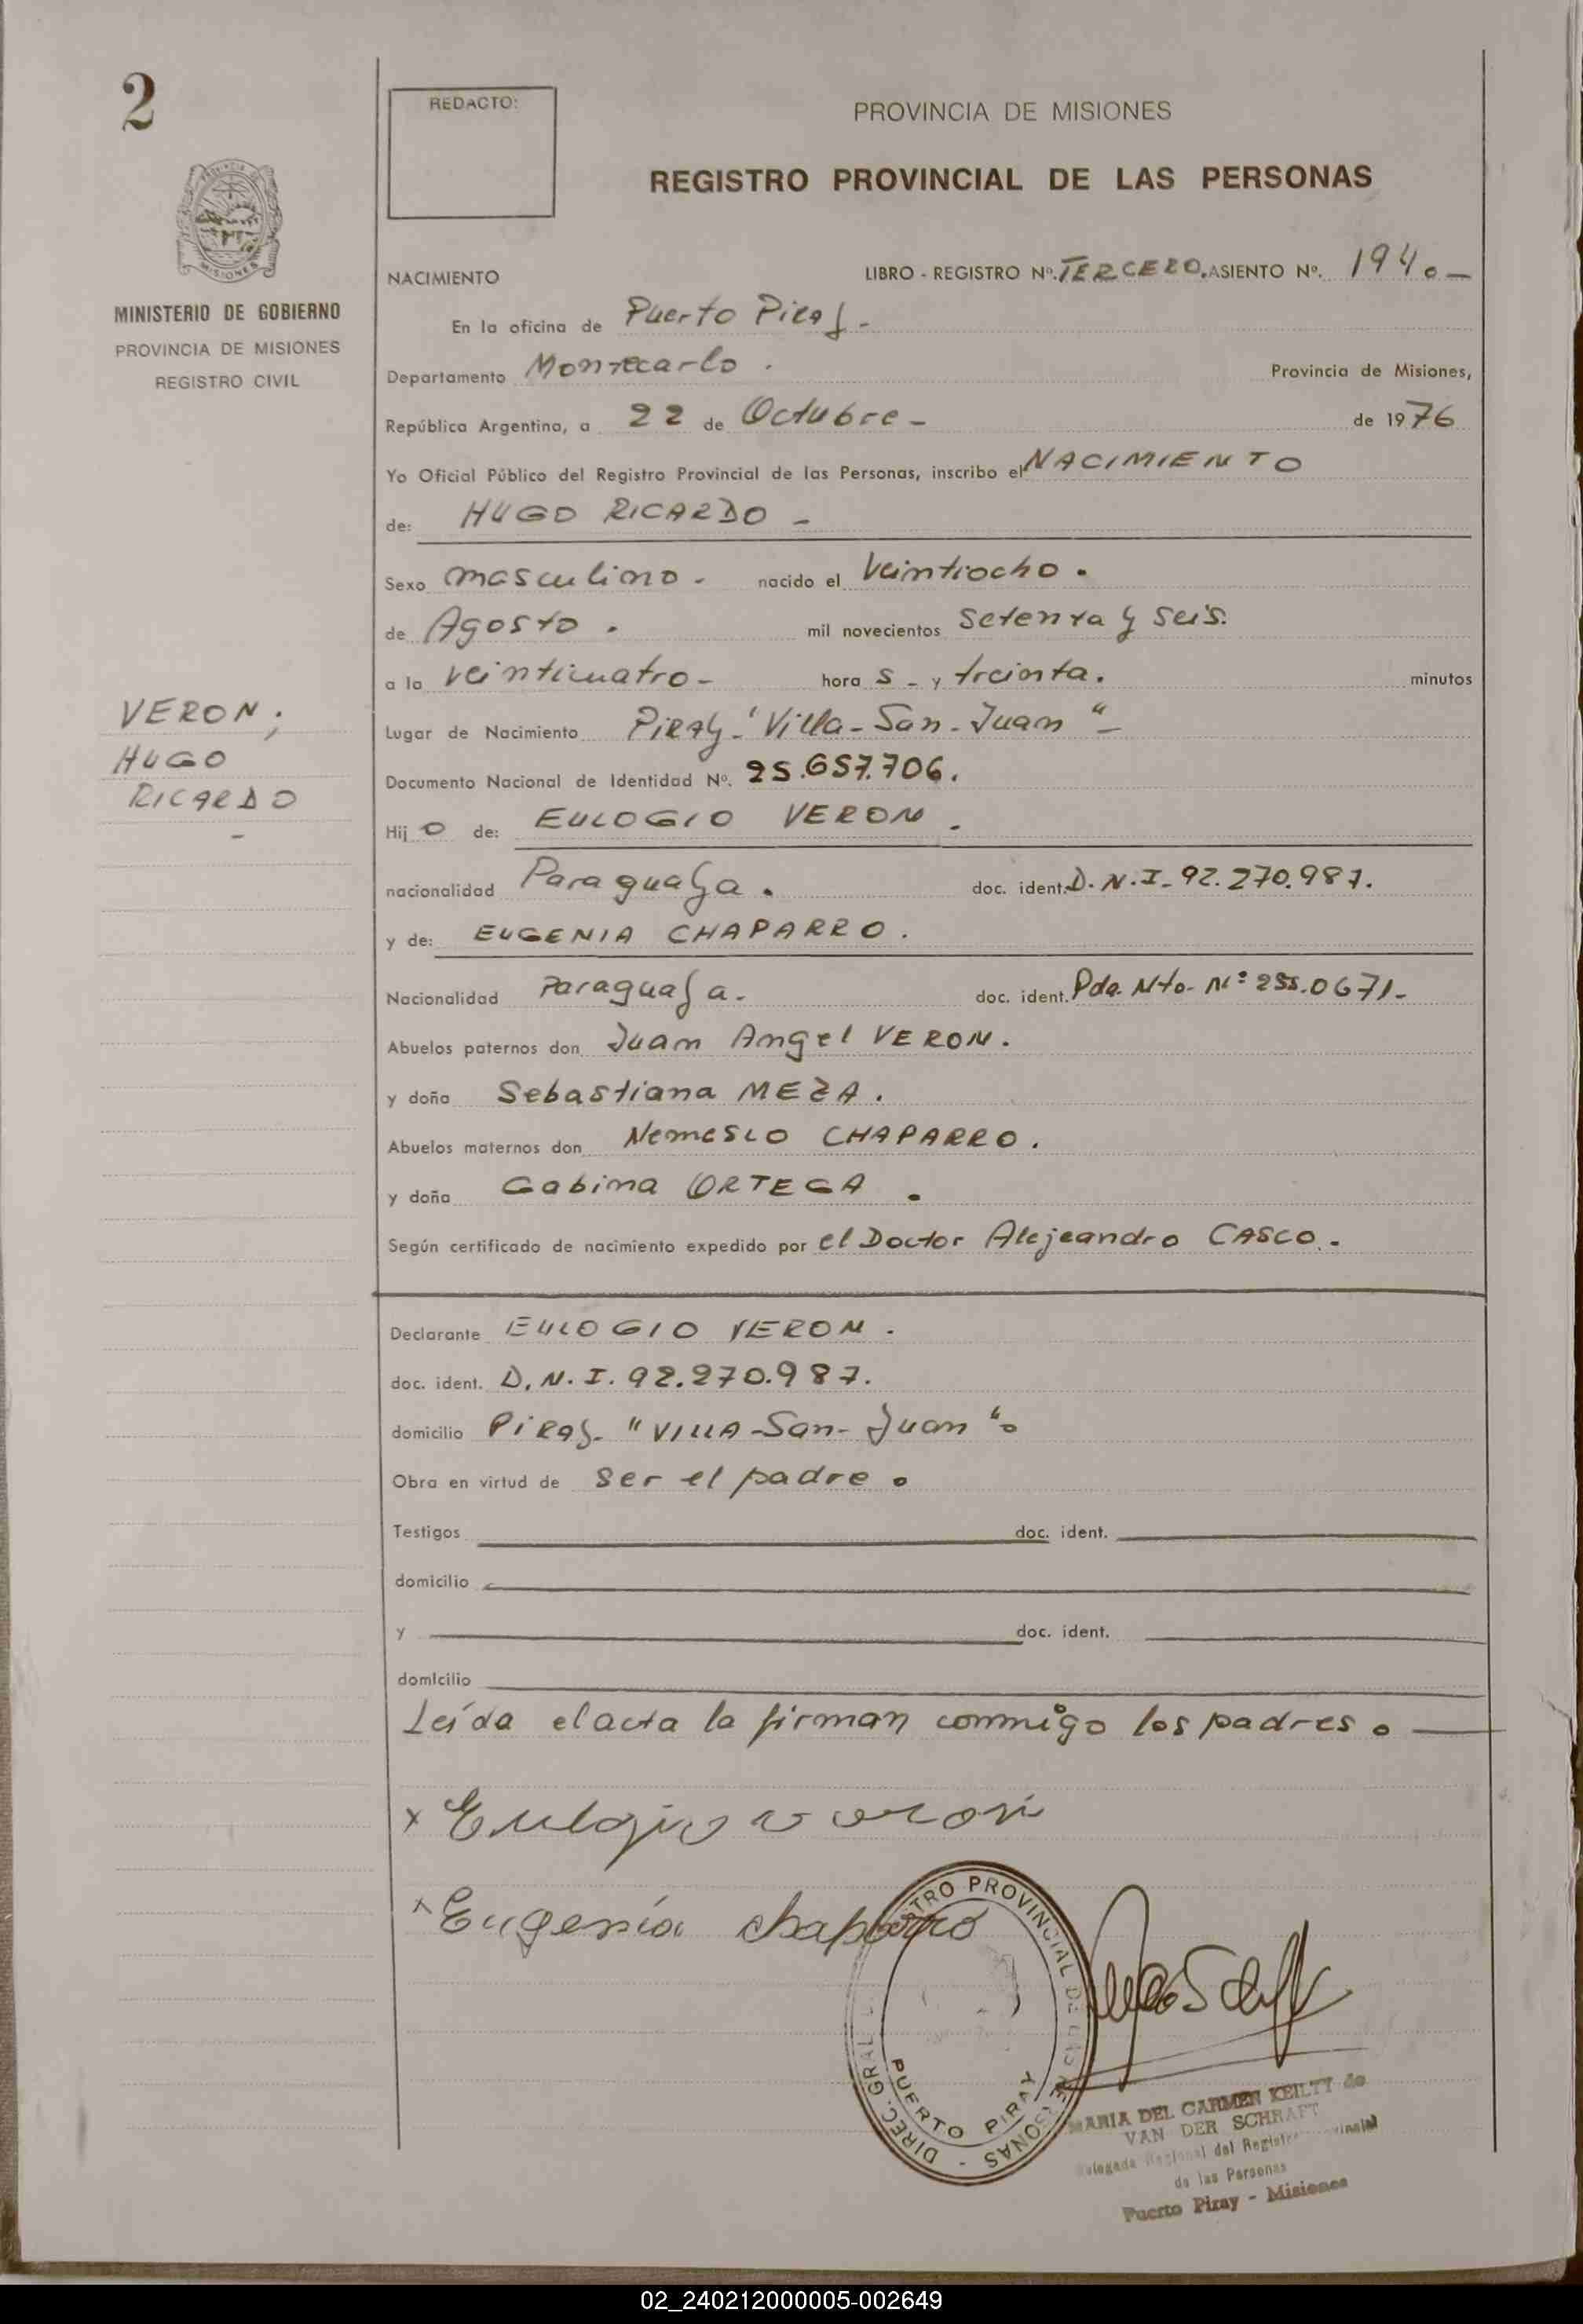 2
REDACTO:
PROVINCIA DE MISIONES
REGISTRO PROVINCIAL DE LAS PERSONAS
MISIONES
MINISTERIO DE GOBIERNO
PROVINCIA DE MISIONES
REGISTRO CIVIL
NACIMIENTO
LIBRO - REGISTRO Nº. TERCERO. ASIENTO Nº. 194.-
En la oficina de Puerto Piray.-
Departamento Montecarlo. Provincia de Misiones,
República Argentina, a 22 de Octubre - de 1976
Yo Oficial Público del Registro Provincial de las Personas, inscribo el NACIMIENTO
de: HUGO RICARDO -
Sexo masculino. nacido el Veintiocho.
de Agosto. mil novecientos Setenta y Seis.
a la veinticuatro- hora s - y treinta. minutos
VERON;
HUGO
RICARDO
-
Lugar de Nacimiento Piray-"Villa-San-Juan"-
Documento Nacional de Identidad Nº. 25.657.706.
Hij o de: EULOGIO VERON.
nacionalidad Paraguaya. doc. ident. D.N.I. 92.270.987.
y de: EUGENIA CHAPARRO.
Nacionalidad Paraguaya. doc. ident. Pda. Nto. Nº 255.0671-
Abuelos paternos don Juan Angel VERON.
y doña Sebastiana MEZA.
Abuelos maternos don Nemesio CHAPARRO.
y doña Gabina ORTEGA.
Según certificado de nacimiento expedido por el Doctor Alejeandro CASCO.-
Declarante EULOGIO VERON.
doc. ident. D.N.I. 92.270.987.
domicilio Piray- "VILLA-San-Juan".
Obra en virtud de ser el padre.
Testigos doc. ident.
domicilio
y doc. ident.
domicilio
Leída el acta la firman conmigo los padres.
x Eulogio veron
x Eugenia chaparro
DIREC. GRAL TRO PROVINCIAL DE LAS PERSONAS - PUERTO PIRAY
MARIA DEL CARMEN KEILTY de
VAN DER SCHRAFT
Delegada Regional del Registro Provincial
de las Personas
Puerto Piray - Misiones
02_240212000005-002649